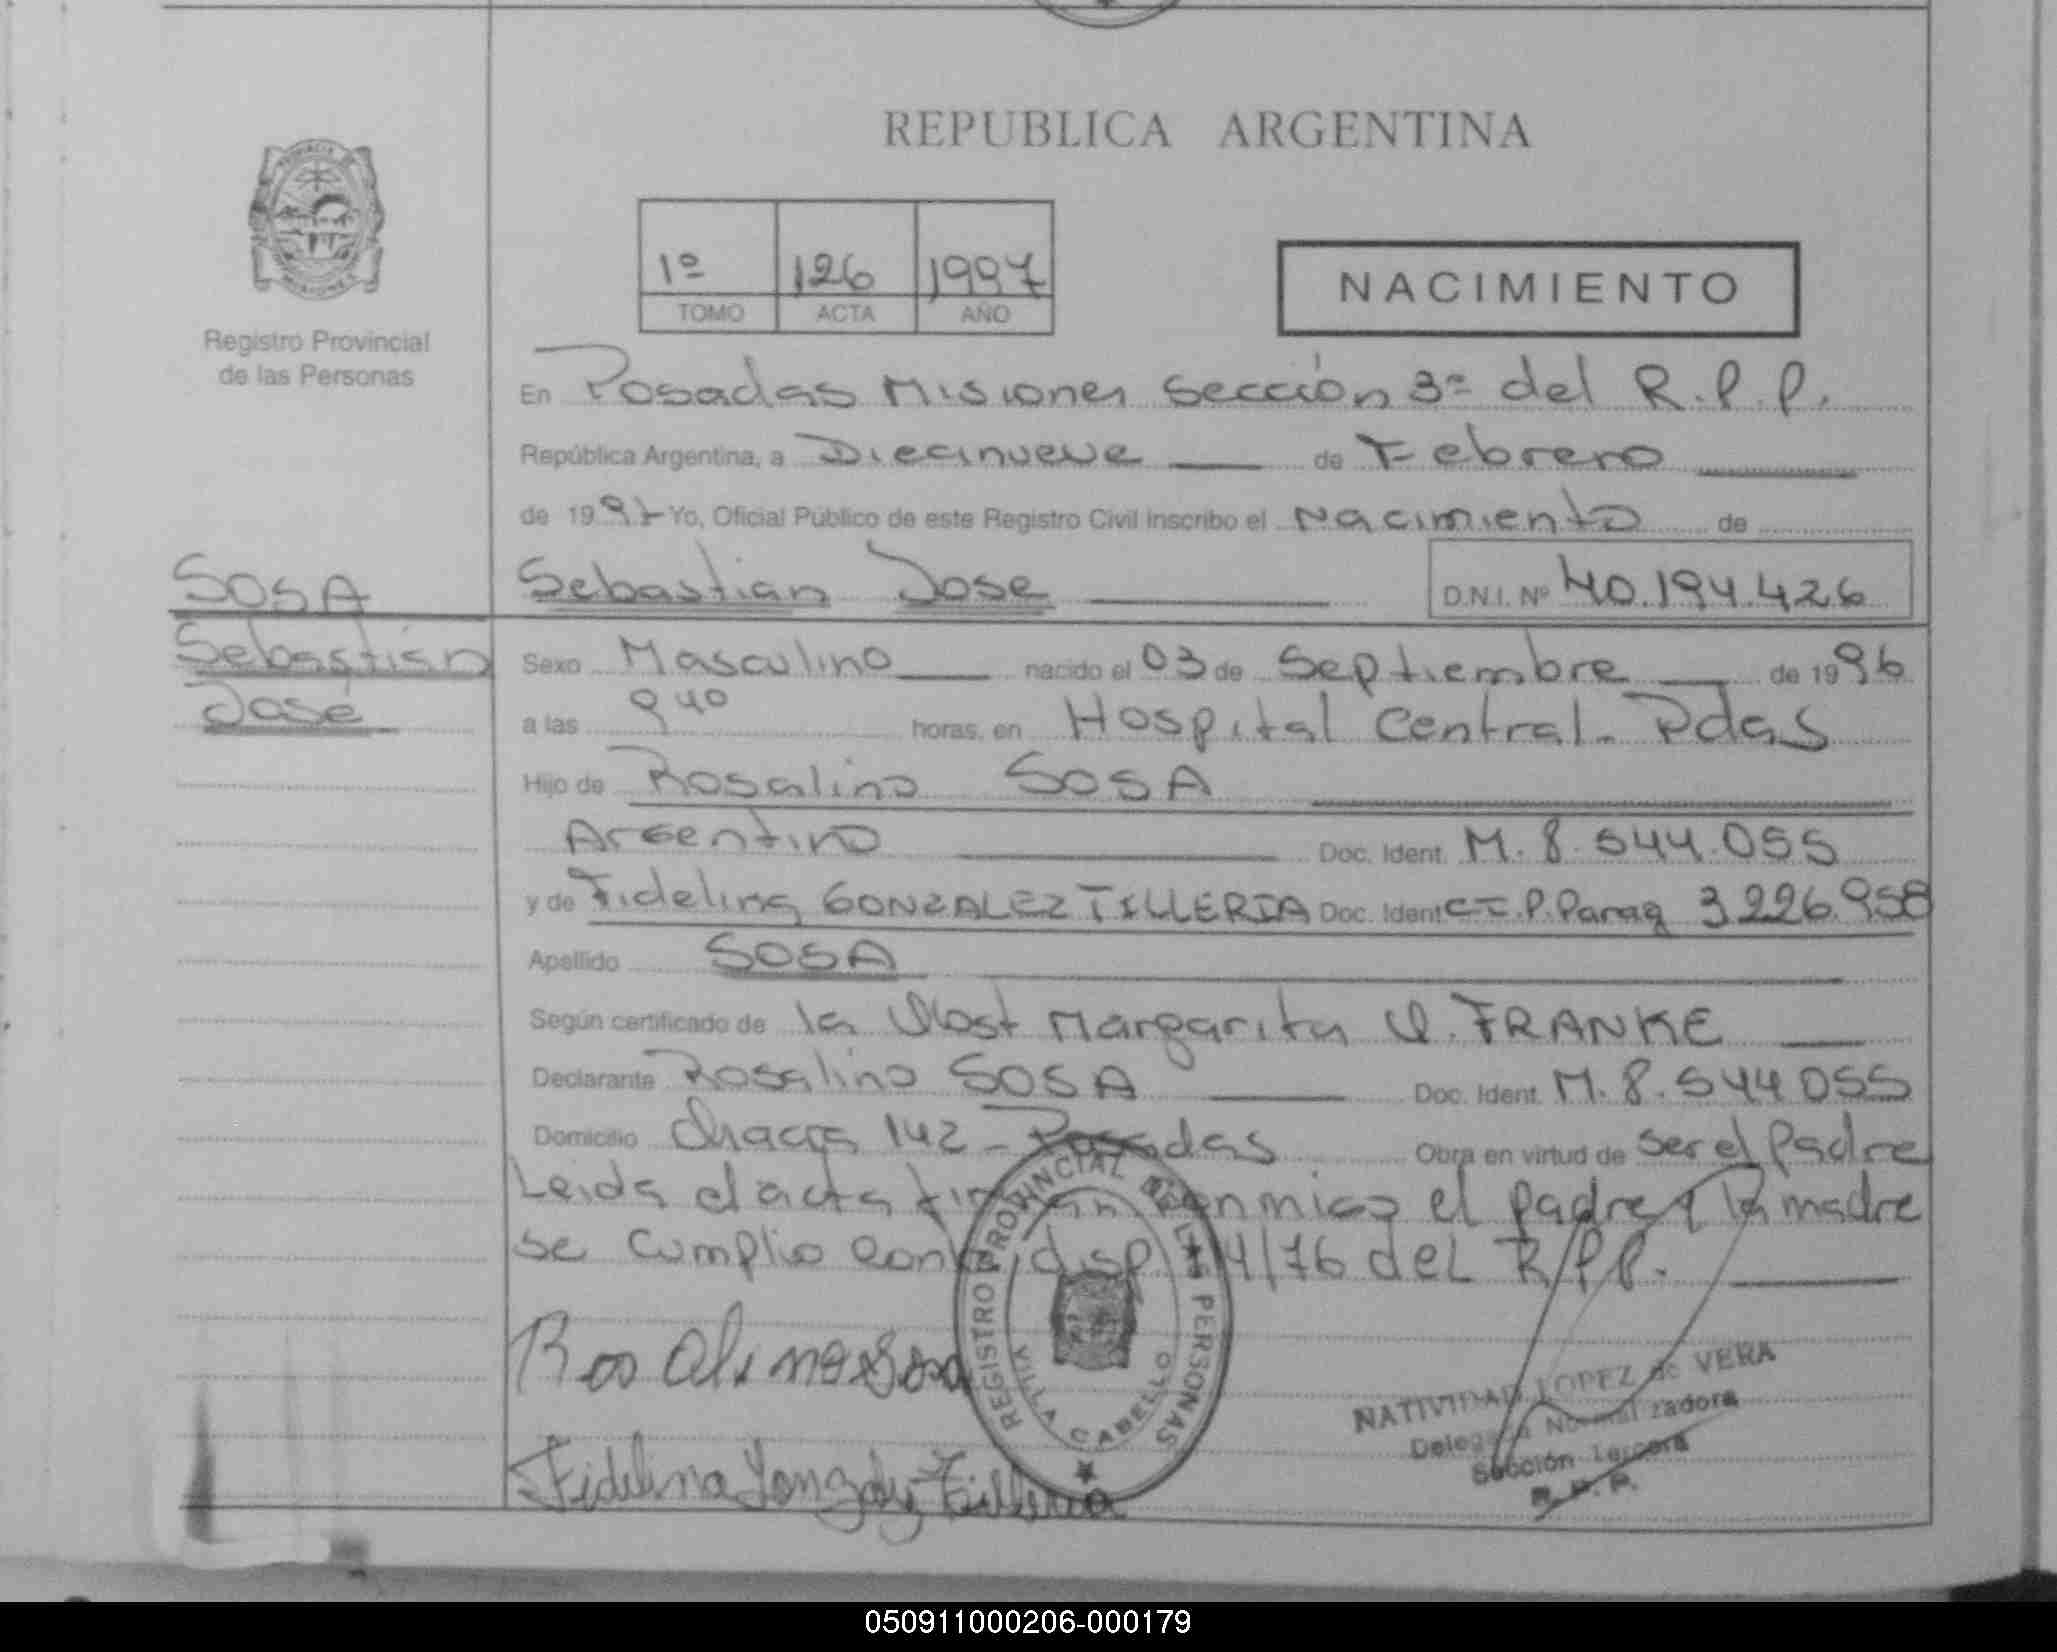 REPUBLICA ARGENTINA
PROVINCIA DE MISIONES
Registro Provincial
de las Personas
1º 126 1997
TOMO ACTA AÑO
NACIMIENTO
En Posadas Misiones Sección 3ª del R.P.P.
República Argentina, a Diecinueve de Febrero
de 1997 Yo, Oficial Público de este Registro Civil Inscribo el Nacimiento de
SOSA
Sebastián
José
Sebastian Jose D.N.I. Nº 40.194.426
Sexo Masculino nacido el 03 de Septiembre de 1996
a las 9 40 horas, en Hospital Central. Pdas
Hijo de Rosalino SOSA
Argentino Doc. Ident. M. 8.544.055
y de Fidelina GONZALEZ TILLERIA Doc. Ident C.I.P. Parag 3.226.958
Apellido SOSA
Según certificado de la Obst Margarita FRANKE
Declarante Rosalino SOSA Doc. Ident. M. 8.544.055
Domicilio Chacra 142 - Posadas Obra en virtud de ser el Padre
Leida el acta firman conmigo el padre y la madre
se cumplio con la disp. 4/76 del R.P.P.
Rosalino Sosa
Fidelina Gonzalez Tilleria
REGISTRO PROVINCIAL DE LAS PERSONAS
VILLA CABELLO
NATIVIDAD LOPEZ de VERA
Delegada Normalizadora
Sección Tercera
R. P. P.
050911000206-000179